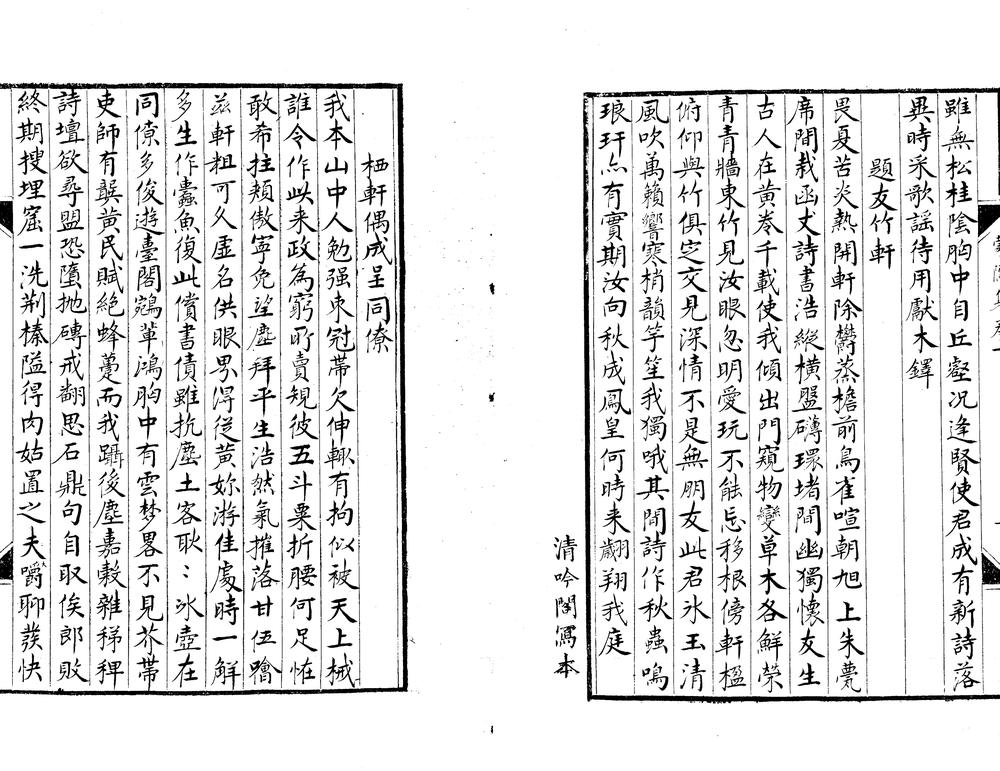 雖無松桂陰胸中自丘壑况逢賢使君成有新詩落
異時采歌謡待用獻木鐸
題友竹軒
畏夏苦炎熱開軒除欝蒸檐前鳥雀喧朝旭上朱甍
席間栽函丈詩書浩縱横盤礴環堵間幽獨懷友生
古人在黄卷千載使我傾出門窺物變草木各鮮榮
青青牆東竹見汝眼忽明愛玩不能忘移根傍軒楹
俯仰與竹俱定交見深情不是無朋友此君氷玉清
風吹萬籟響寒梢韻竽笙我獨哦其間詩作秋蟲鳴
琅玕亦有實期汝向秋成鳳皇何時来翽翔我庭
清吟閣寫本
栖軒偶成呈同僚
我本山中人勉强束冠帯欠伸輙有拘似被天上械
誰令作此来政為窮所賣䂓彼五斗粟折腰何足恠
敢希拄頬傲寧免望塵拜平生浩然氣摧落甘伍噲
兹軒粗可久虚名供眼界淂従黄妳游佳處時一解
多生作蠹魚復此償書債雖抗塵土客耿〻氷壺在
同僚多俊逰臺閣鵷軰鴻胸中有雲梦畧不見芥蔕
吏師有龔黄民賦絶蜂蠆而我躡後塵嘉榖雜稊稗
詩壇欲尋盟恐墮抛磚戒翻思石鼎句自取俟郎敗
終期搜埋窟一洗荆榛隘得肉姑置之夫嚼聊發快